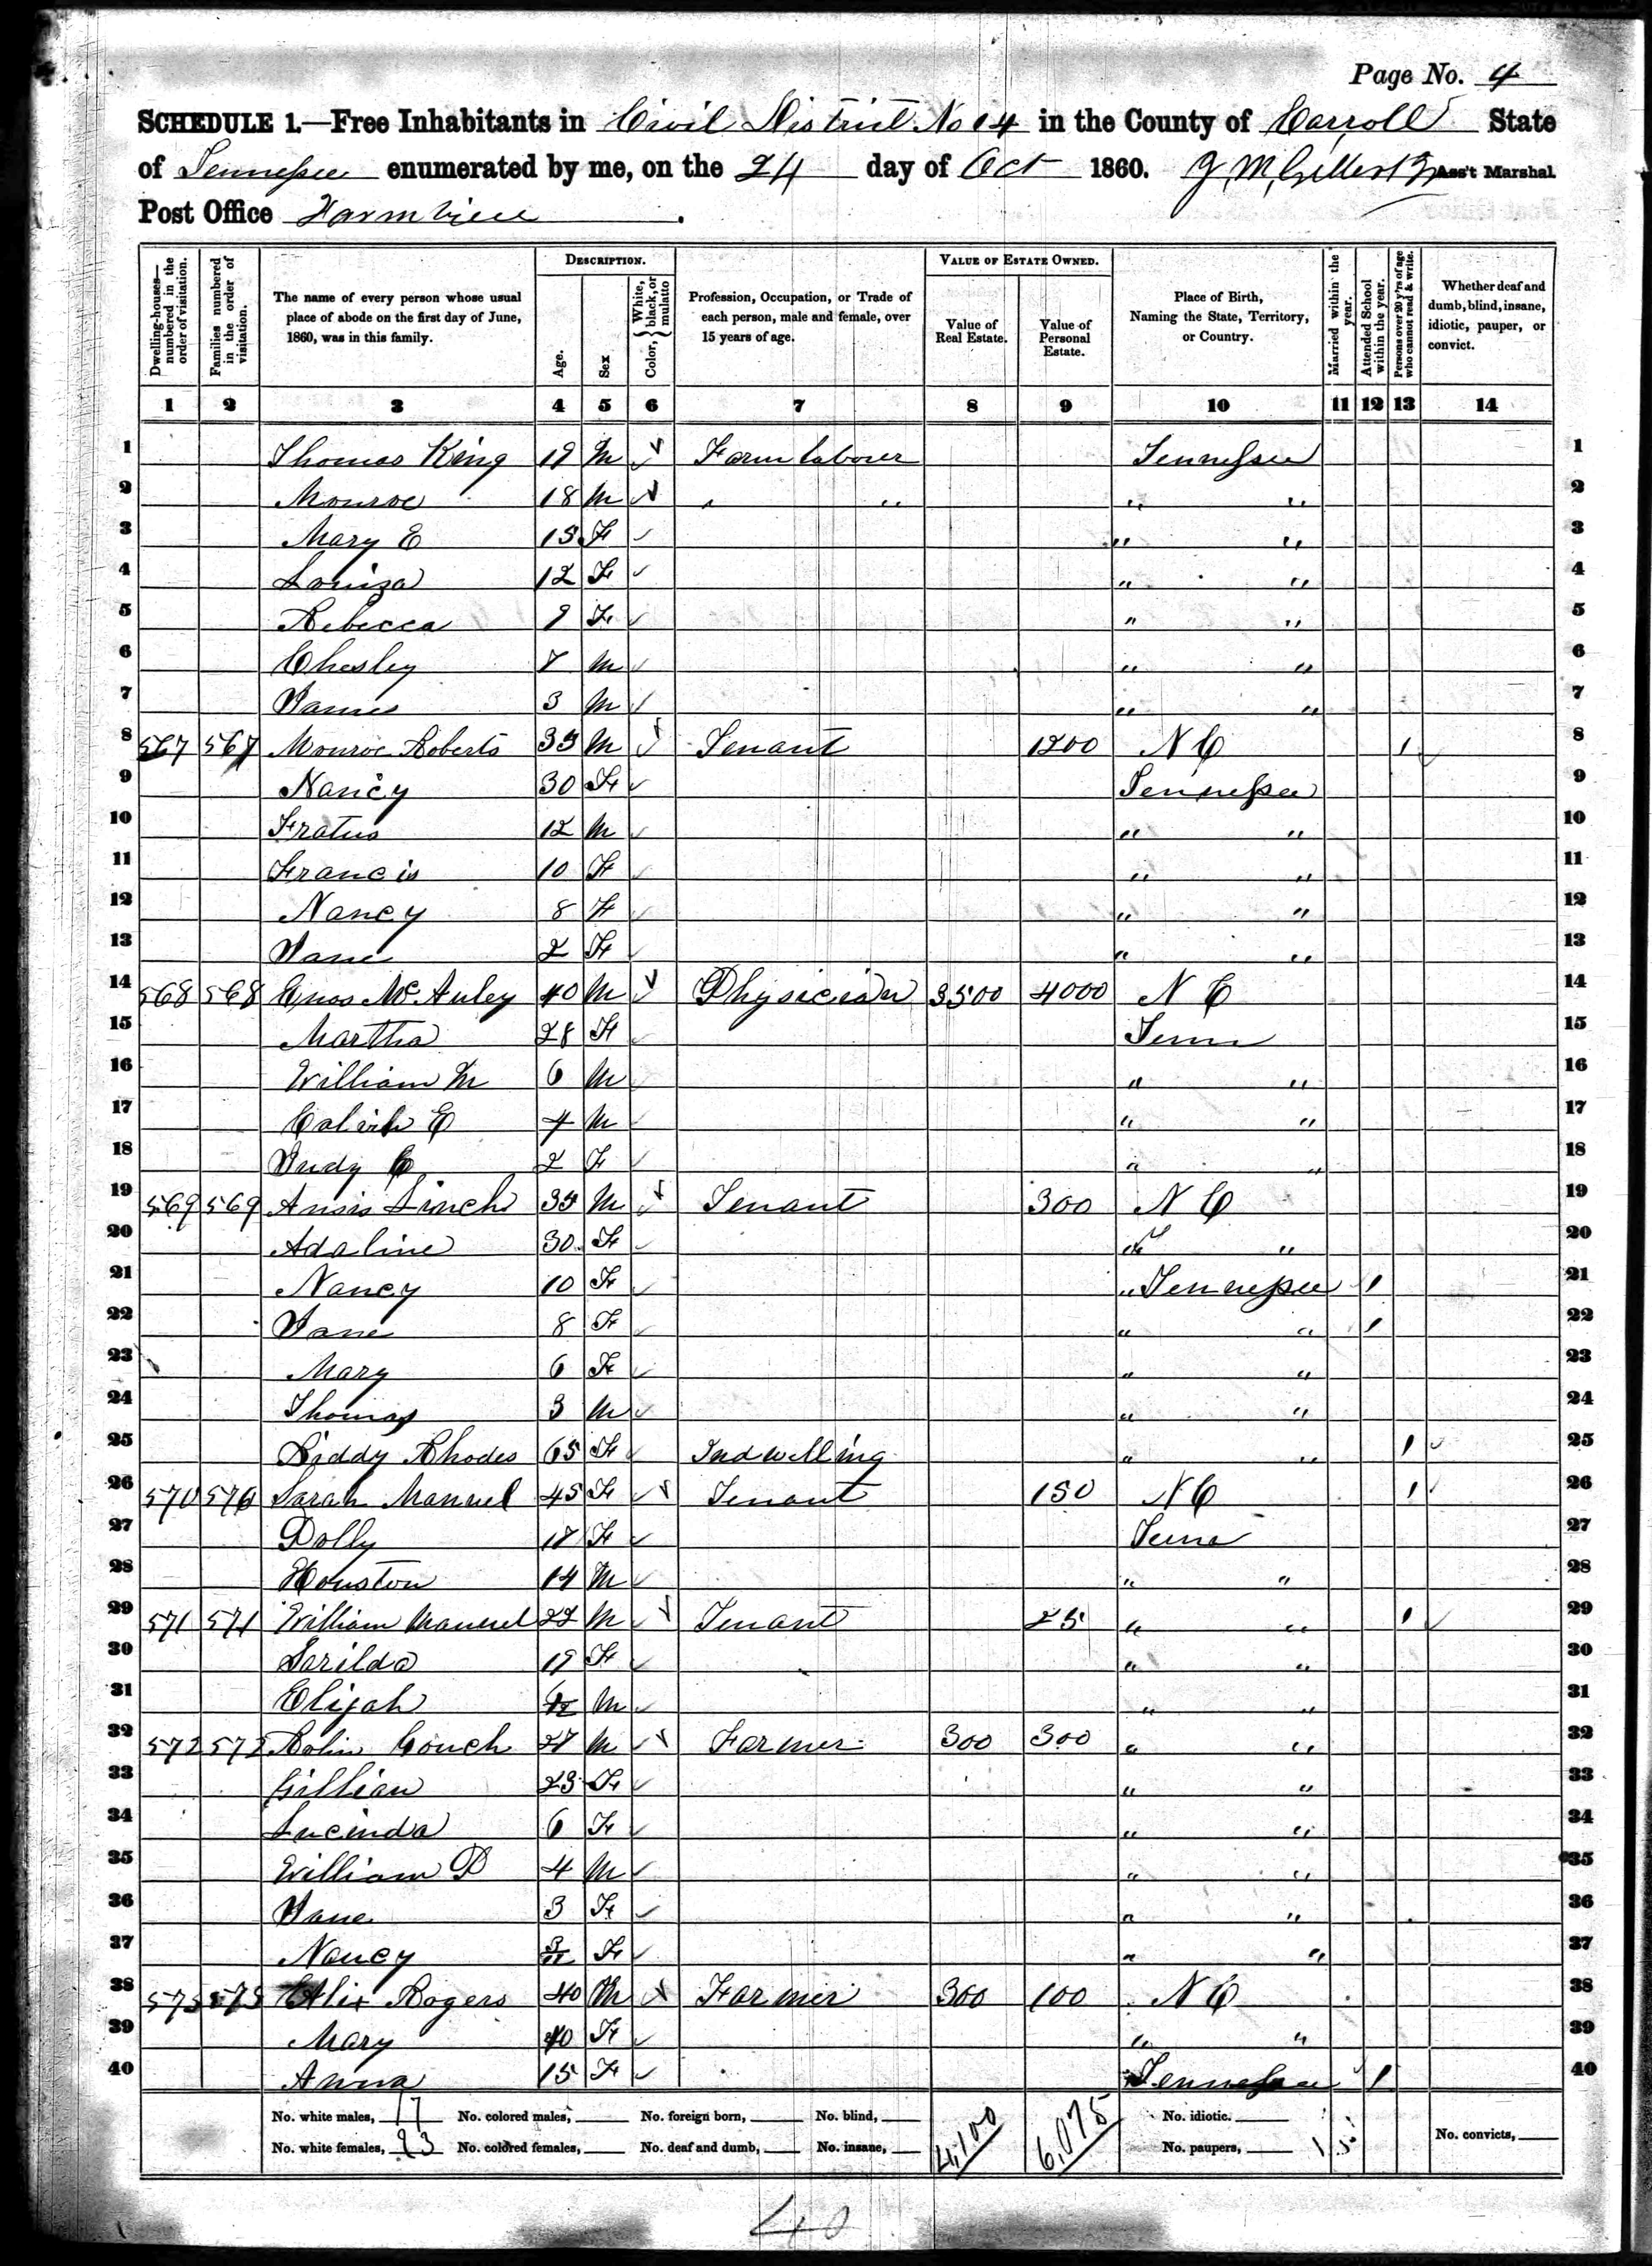 Page No. 4
SCHEDULE 1.—Free Inhabitants in Civil District No 14 in the County of Carroll State
of Tennessee enumerated by me, on the 24 day of Oct 1860. Ass't Marshal.
Post Office
Dwelling-houses—numbered in the order of visitation.
Families numbered in the order of visitation.
The name of every person whose usual place of abode on the first day of June, 1860, was in this family.
DESCRIPTION.
Age.
Sex
Color, { White, black, or mulatto
Profession, Occupation, or Trade of each person, male and female, over 15 years of age.
VALUE OF ESTATE OWNED.
Value of Real Estate.
Value of Personal Estate.
Place of Birth, Naming the State, Territory, or Country.
Married within the year.
Attended School within the year.
Persons over 20 y'rs of age who cannot read & write.
Whether deaf and dumb, blind, insane, idiotic, pauper, or convict.
1 2 3 4 5 6 7 8 9 10 11 12 13 14
1 Thomas King 19 M Farm laborer Tennessee 1
2 Monroe 18 M " " " " 2
3 Mary E 15 F " " 3
4 Louiza 12 F " " 4
5 Rebecca 9 F " " 5
6 Chesley 7 M " " 6
7 James 3 M " " 7
8 567 567 Monroe Roberts 35 M Tenant 1200 N C 1 8
9 Nancy 30 F Tennessee 9
10 12 M " " 10
11 Francis 10 F " " 11
12 Nancy 8 F " " 12
13 Jane 2 F " " 13
14 568 568 Enos McAuley 40 M Physician 3500 4000 N C 14
15 Martha 28 F Tenn 15
16 William M 6 M " " 16
17 Calvin E 4 M " " 17
18 Judy 2 F " " 18
19 569 569 35 M Tenant 300 N C 19
20 Adaline 30 F " " 20
21 Nancy 10 F " Tennessee 1 21
22 Jane 8 F " " 1 22
23 Mary 6 F " " 23
24 Thomas 3 M " " 24
25 Liddy Rhodes 65 F Indwelling " " 1 25
26 570 570 Sarah Manuel 45 F Tenant 150 N C 1 26
27 Dolly 18 F Tenn 27
28 Houston 14 M " " 28
29 571 571 William Manuel 22 M Tenant 25 " " 1 29
30 Sarilda 19 F " " 30
31 Elijah M " " 31
32 572 572 Couch 27 M Farmer 300 300 " " 32
33 Gillian 23 F " " 33
34 Lucinda 6 F " " 34
35 William D 4 M " " 35
36 Jane 3 F " " 36
37 Nancy F " " 37
38 573 573 Rogers 40 M Farmer 300 100 N C 38
39 Mary 40 F " " 39
40 Anna 15 F Tennessee 1 40
No. white males, 17 No. colored males, No. foreign born, No. blind, 4,100 6,075 No. idiotic.
No. white females, 23 No. colored females, No. deaf and dumb, No. insane, No. paupers, No. convicts,
40